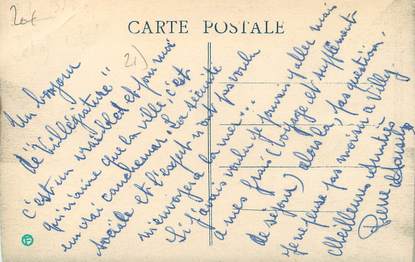 20€
CARTE POSTALE
21)
Un bonjour
de "Villégiature"
C'est un vrai bled et pour moi
qui n'aime que la ville, c'est
un vrai cauchemar. La sécurité
sociale et l'expert n'ont pas voulu
m'envoyer à la mer...
Si j'avais voulu je pouvais y aller mais
à mes frais (voyage et supplément
de séjour) alors là, pas question.
Je ne pense pas moisir à Villey.
Meilleures amitiés
Pierre